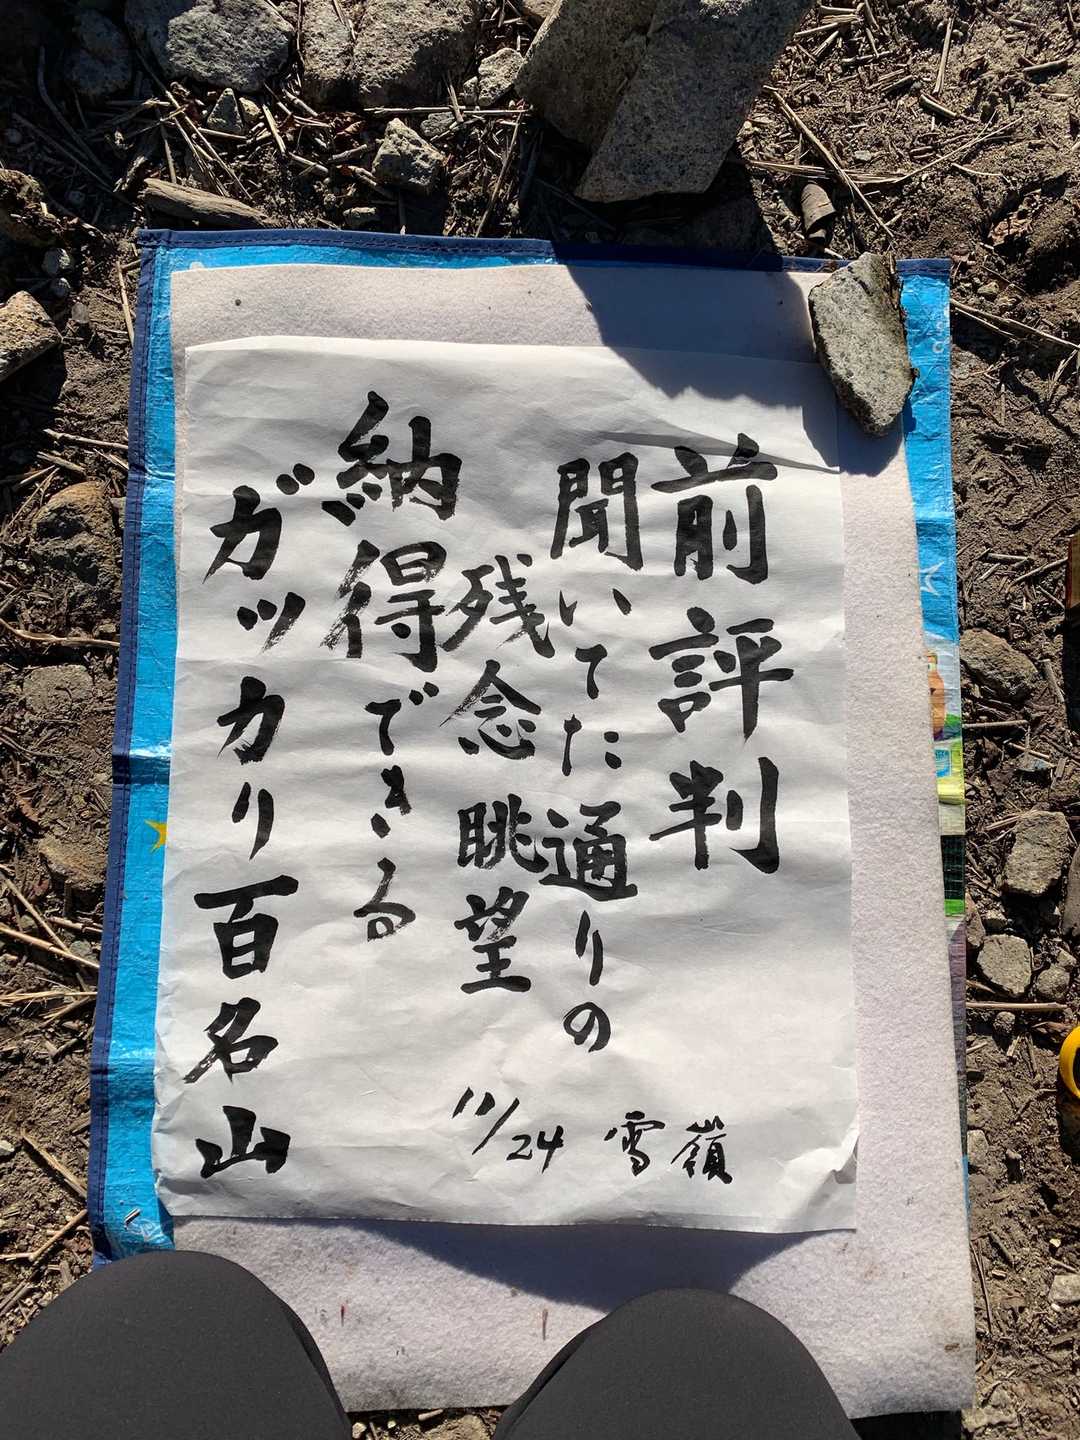 前評判
聞いてた通りの
残念眺望
納得できる
ガッカリ百名山
11/24 雪嶺